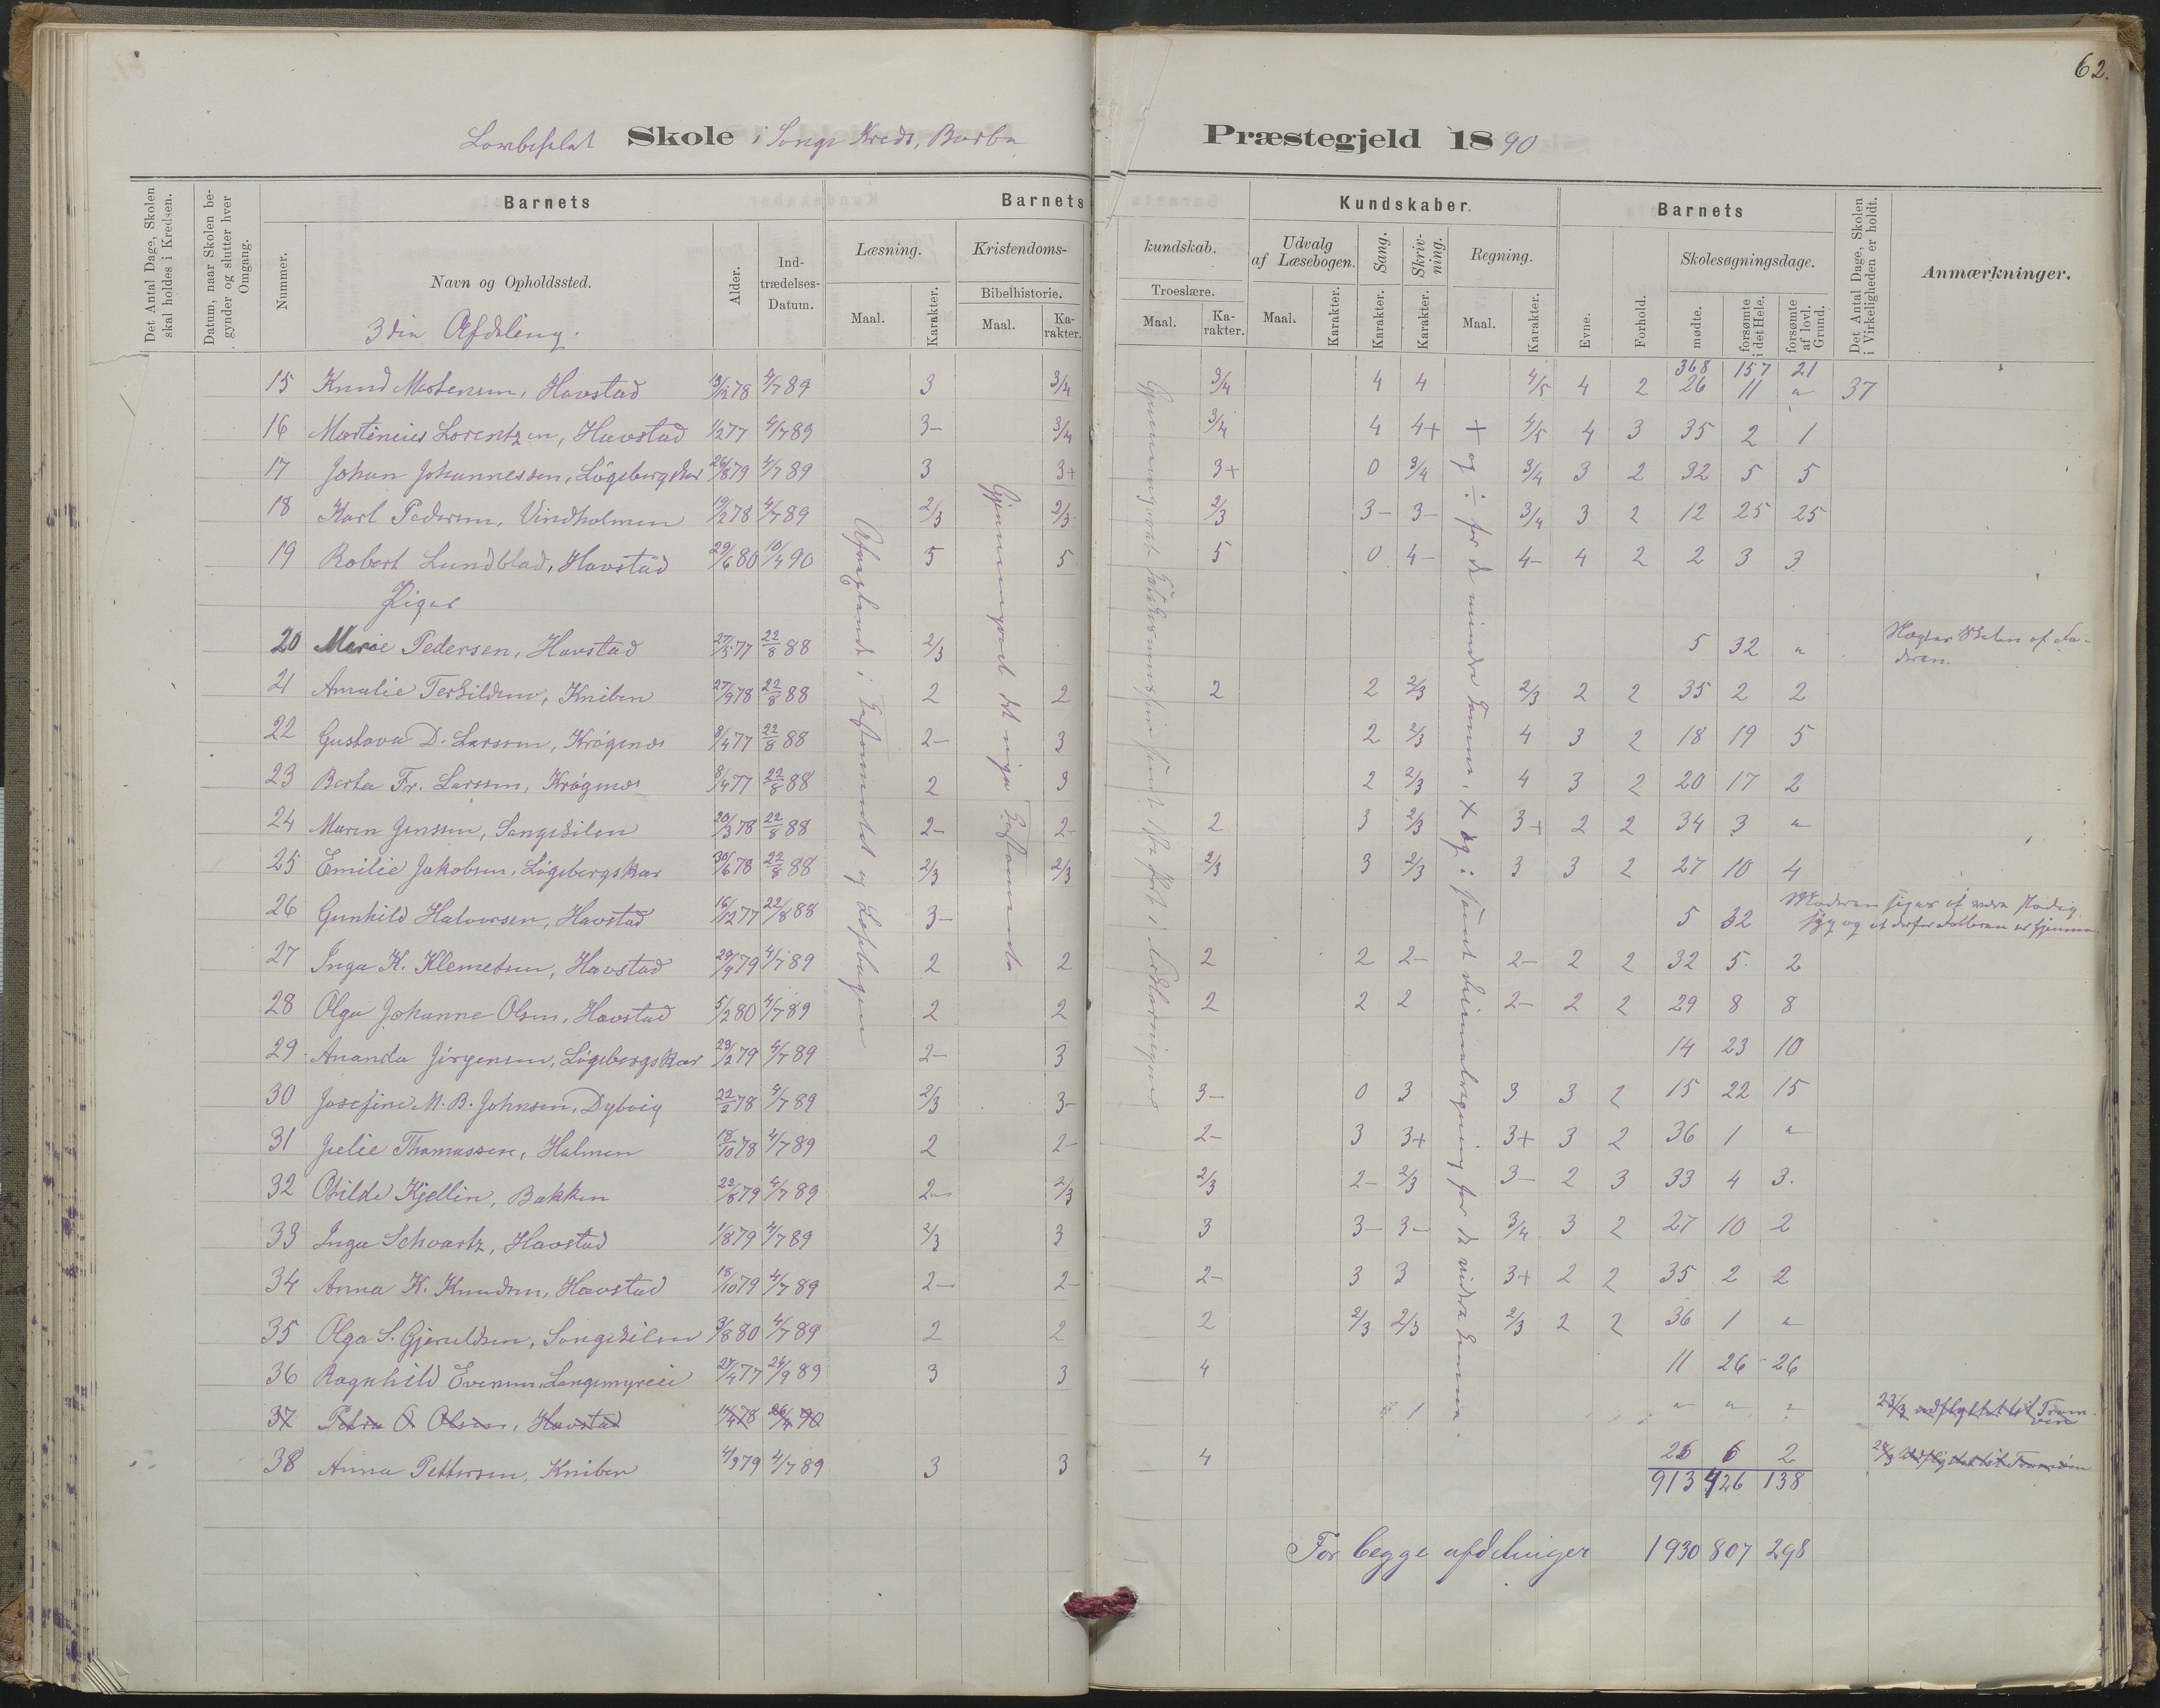 62.
Skole i Songe Kreds, Barbu Præstegjeld 1890
Det Antal Dage, Skolen skal holdes i Kredsen.
Datum, naar Skolen begynder og slutter hver Omgang.
Nummer.
Barnets
Navn og Opholdssted.
Alder.
Indtrædelses-Datum.
Barnets Kundskaber.
Læsning.
Maal.
Karakter.
Kristendomskundskab.
Bibelhistorie.
Maal.
Karakter.
Troeslære.
Maal.
Karakter.
Udvalg af Læsebogen.
Maal.
Karakter.
Sang.
Karakter.
Skrivning.
Karakter.
Regning.
Maal.
Karakter.
Barnets
Evne.
Forhold.
Skolesøgningsdage.
mødte.
forsømte i det Hele.
forsømte af lovl. Grund.
Det Antal Dage, Skolen i Virkeligheden er holdt.
Anmærkninger.
3die Afdeling.
368 157 21
15 Knud Mortensen, Havstad 13/12 78 4/7 89 3 3/4 3/4 4 4 4/5 4 2 26 11 " 37
16 Martinius Lorentzen, Havstad 1/2 77 4/7 89 3- 3/4 3/4 4 4+ 4/5 4 3 35 2 1
17 Johan Johannessen, Lögebergskar 26/8 79 4/7 89 3 3+ 3+ 0 3/4 3/4 3 2 32 5 5
18 Karl Pedersen, Vindholmen 19/2 78 4/7 89 2/3 2/3 2/3 3- 3- 3/4 3 2 12 25 25
19 Robert Lundblad, Havstad 29/6 80 10/4 90 5 5 5 0 4- 4- 4 2 2 3 3
Piger
20 Marie Pedersen, Havstad 27/5 77 22/8 88 2/3 5 32 "
21 Amalie Terkildsen, Kniben 27/9 78 22/8 88 2 2 2 2 2/3 2/3 2 2 35 2 2
22 Gustava D. Larssen, Krögenes 8/4 77 22/8 88 2- 3 2 2/3 4 3 2 18 19 5
23 Berta Fr. Larssen, Krögenes 8/4 77 22/8 88 2 3 2 2/3 4 3 2 20 17 2
24 Maren Jenssen, Songekilen 20/3 78 22/8 88 2- 2- 2 3 2/3 3+ 2 2 34 3 "
25 Emilie Jakobsen, Lögebergskar 30/6 78 22/8 88 2/3 2/3 2/3 3 2/3 3 3 2 27 10 4
26 Gunhild Halvorsen, Havstad 16/12 77 22/8 88 3- 5 32 Moderen siger at være stadig syg og at derfor datteren er hjemme
27 Inga K. Klemetsen, Havstad 29/9 79 4/7 89 2 2 2 2 2- 2- 2 2 32 5 2
28 Olga Johanne Olsen, Havstad 5/2 80 4/7 89 2 2 2 2 2 2- 2 2 29 8 8
29 Ananda Jörgensen, Lögebergskar 23/2 79 4/7 89 2- 3 14 23 10
30 Josefine M. B. Johnsen, Dybvig 22/2 78 4/7 89 2/3 3- 3- 0 3 3 3 2 15 22 15
31 Julie Thomassen, Holmen 18/10 78 4/7 89 2 2- 2- 3 3+ 3+ 3 2 36 1 "
32 Otilde Kjellin, Bakken 22/8 79 4/7 89 2- 2/3 2/3 2- 2/3 3- 2 3 33 4 3.
33 Inga Schvartz, Havstad 1/8 79 4/7 89 2/3 3 3 3- 3- 3/4 3 2 27 10 2
34 Anna K. Knudsen, Havstad 18/10 79 4/7 89 2- 2- 2- 3 3 3+ 2 2 35 2 2
35 Olga S. Gjeruldsen, Songekilen 3/8 80 4/7 89 2 2 2 2/3 2/3 2/3 2 2 36 1 "
36 Ragnhild Evensen, Langemyrene 27/4 77 24/9 89 3 3 4 11 26 26
37 Petra O Olsen, Havstad " " " udflyttet til
38 Anna Pettersen, Kniben 4/9 79 4/7 89 3 3 4 26 6 2
913 426 138
For begge afdelinger 1930 807 298
Gjennemgaaet det nye Testamente
+ og ÷ for de mindre kunne, × og : samt for de videre komne.